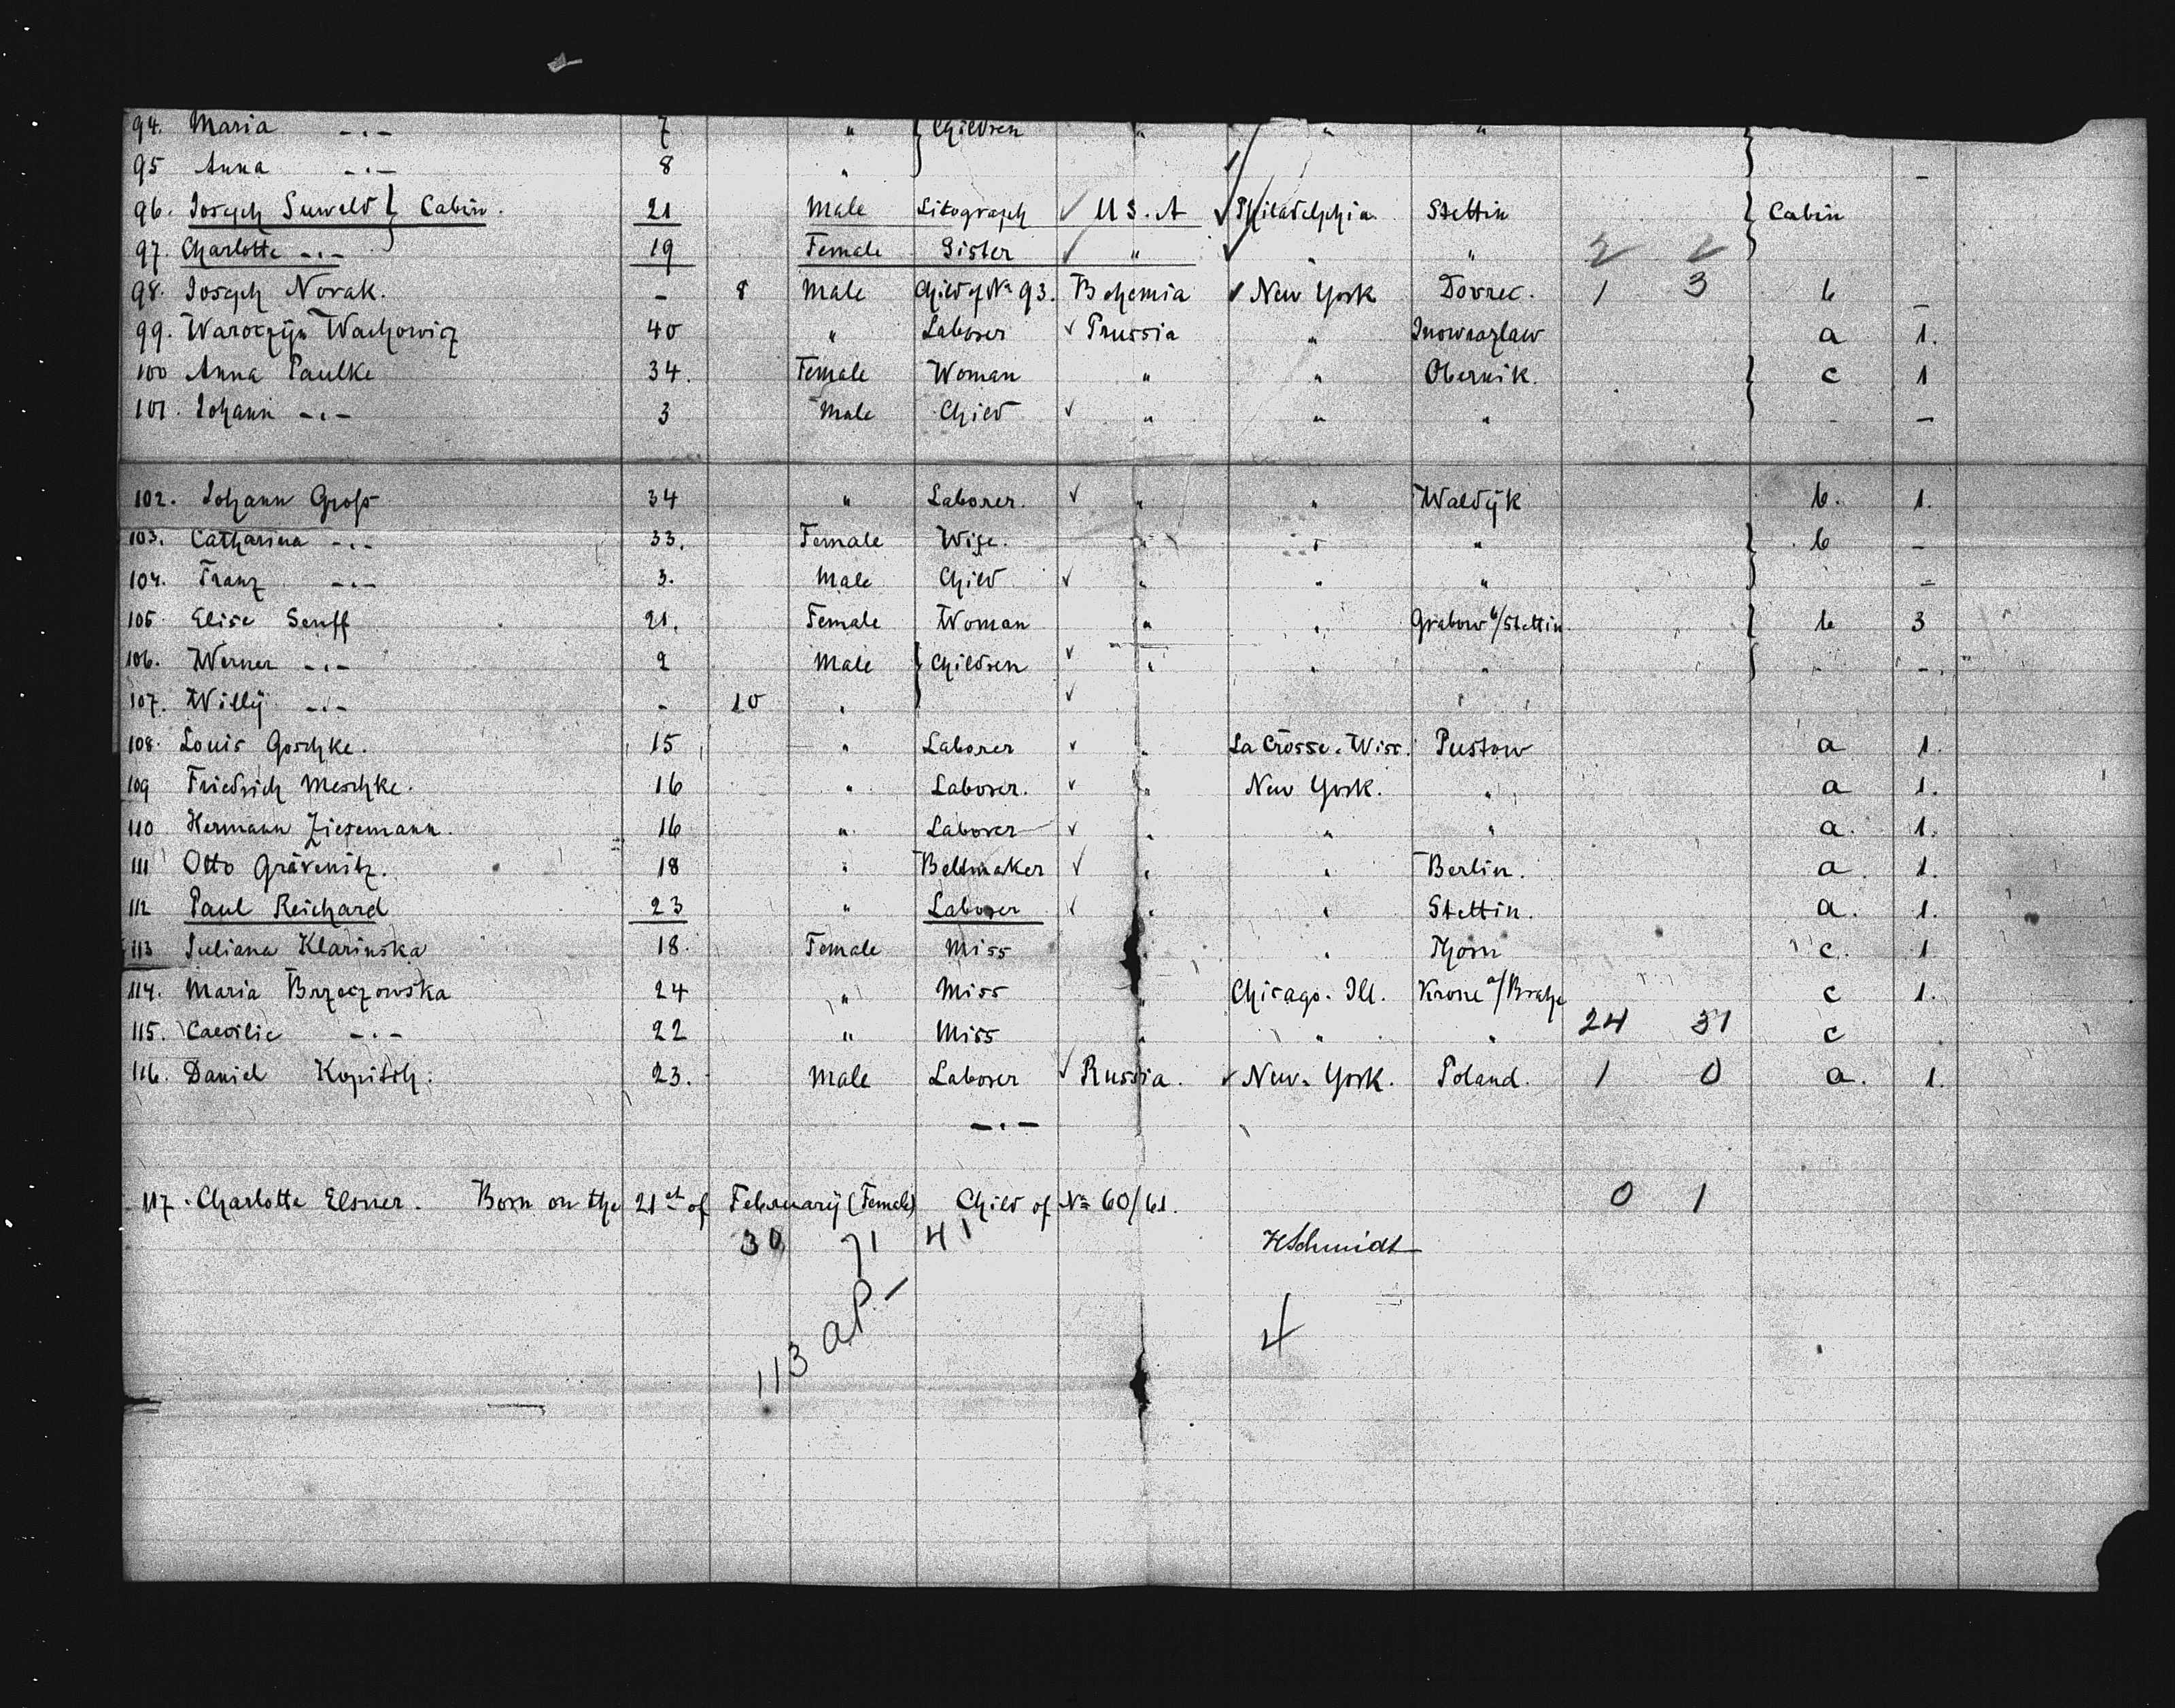 94. Maria -.- 7 " } Children " " "
95 Anna -.- 8 " -
96. Joseph Suwald } Cabin. 21 Male Litograph ✓ U S. A ✓ Philadelphia Stettin } Cabin
97. Charlotte -.- 19 Female Sister ✓ " ✓ " " 2 2
98. Joseph Novak. - 8 Male Child of No 93. Bohemia ✓ New York Dovrec. 1 3 b -
99. Wachowicz 40 " Laborer ✓ Prussia " Inowrazlaw a 1.
100 Anna Paulke 34. Female Woman " " Obernik. } c 1
101. Johann -.- 3 Male Child ✓ " " " - -
102. Johann Groß 34 " Laborer. ✓ " " Waldÿk b. 1.
103. Catharina -.- 33. Female Wife. " " " } b -
104. Franz -.- 3. Male Child ✓ " " " -
105. Elise Senff 21. Female Woman " " Grabow b/Stettin } b 3
106. Werner -.- 2 Male } Children ✓ " " " - -
107. Willÿ -.- - 10 " ✓ " "
108. Louis Goschke. 15 " Laborer ✓ " La Crosse. Wiss. Pustow a 1.
109 Friedrich Meschke. 16 " Laborer. ✓ " New York. " a 1.
110 Hermann Ziesemann. 16 " Laborer ✓ " " " a. 1.
111 Otto Grävenitz. 18 " Beltmaker ✓ " " Berlin. a. 1.
112 Paul Reichard 23 " Laborer ✓ " " Stettin. a. 1.
113 Juliana Klarinska 18. Female Miss " " Thorn c. 1
114. Maria Brzeczowska 24 " Miss " Chicago. Ill. Krone a/Brahe c 1.
115. Caecilie -.- 22 " Miss " " " 24 31 c
116. Daniel Kopitsch. 23. Male Laborer ✓ Russia. ✓ New. York. Poland. 1 0 a. 1.
-.-
117. Charlotte Elsner. Born on the 21st of Februarÿ (Female) Child of No 60/61. 0 1
30 71 41 HSchmidt
113 aP- 4